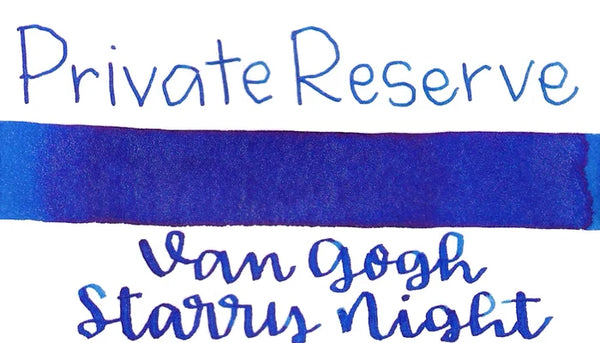 Private Reserve
Van Gogh
Starry Night